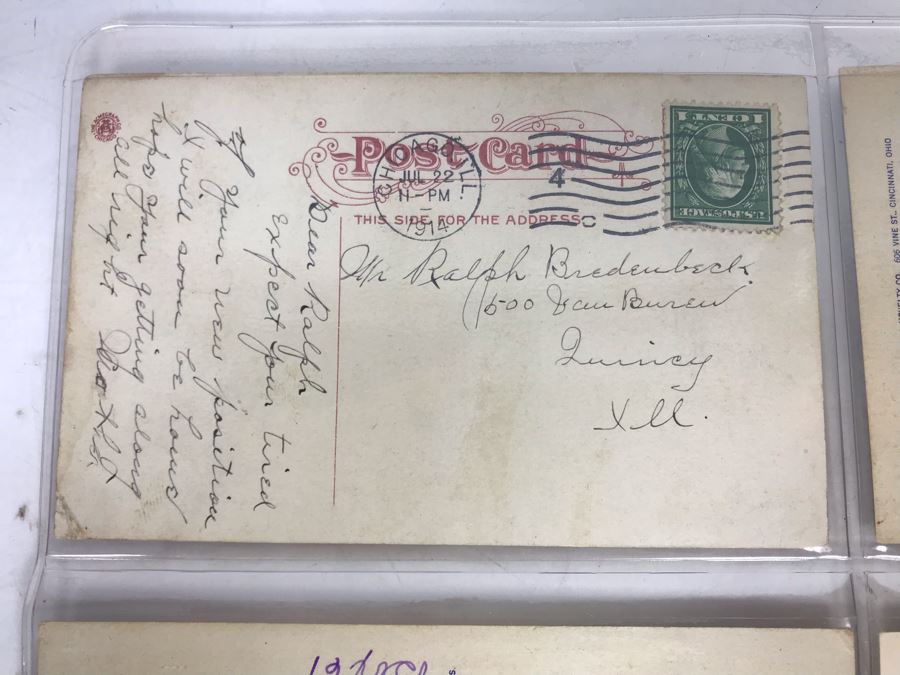 Post Card
CHICAGO, ILL.
JUL 22
11-PM
1914
4
C
THIS SIDE FOR THE ADDRESS.
Mr Ralph Bredenbeck
500 Van Buren
Quincy
Ill.
Dear Ralph
Expect your tired
of your new position
I will soon be home
hope your getting along
all right
1 CENT 1
U.S. POSTAGE
606 VINE ST., CINCINNATI, OHIO